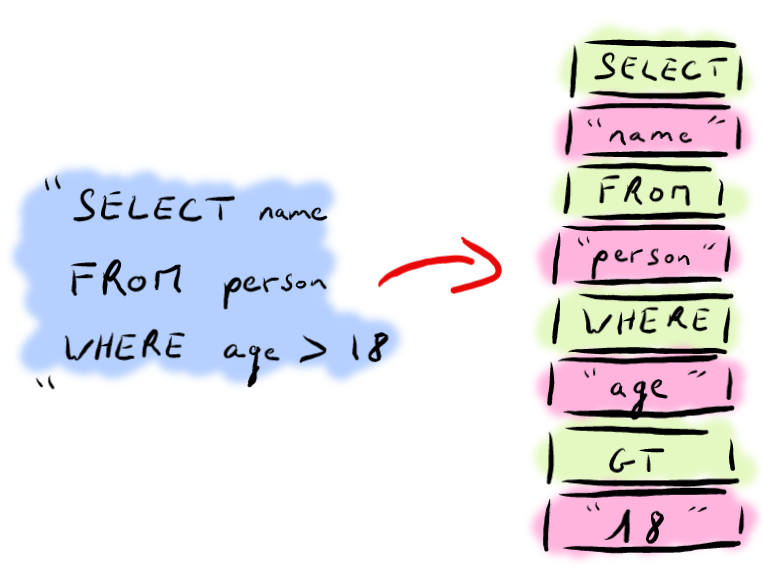 "SELECT name
FROM person
WHERE age > 18
"
SELECT
"name"
FROM
"person"
WHERE
"age"
GT
"18"